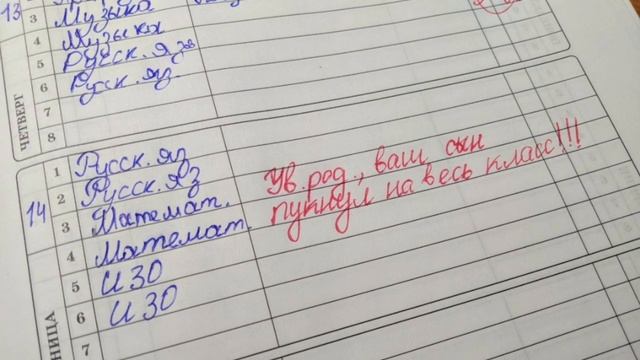 13
3 Музыка
4 Музыка
5 Русск. яз
6 Русск. яз.
7
8
ЧЕТВЕРГ
14
1 Русск. яз
2 Русск. яз
3 Математ.
4 Математ.
5 ИЗО
6 ИЗО
7
НИЦА
Ув. род., ваш сын
пукнул на весь класс!!!